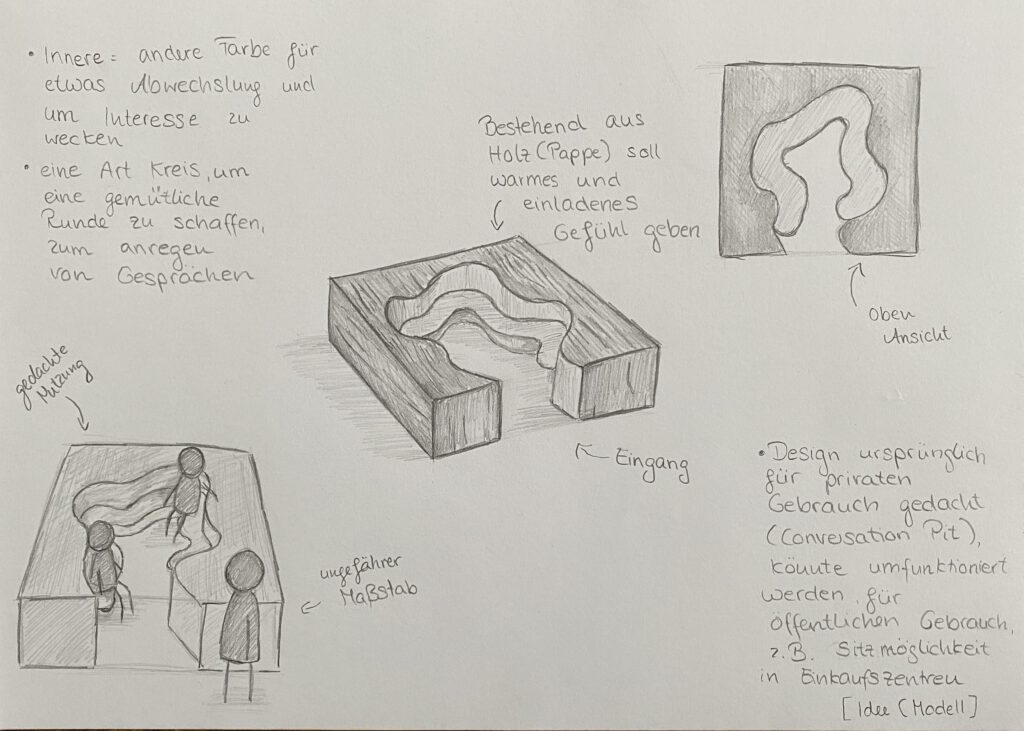 • Innere = andere Farbe für
etwas Abwechslung und
um Interesse zu
wecken
• eine Art Kreis, um
eine gemütliche
Runde zu schaffen,
zum anregen
von Gesprächen
Bestehend aus
Holz (Pappe) soll
warmes und
einladenes
Gefühl geben
Oben
Ansicht
gedachte
Nutzung
Eingang
ungefährer
Maßstab
• Design ursprünglich
für privaten
Gebrauch gedacht
(Conversation Pit),
könnte umfunktioniert
werden für
öffentlichen Gebrauch,
z.B. Sitzmöglichkeit
in Einkaufszentren
[Idee (Modell]